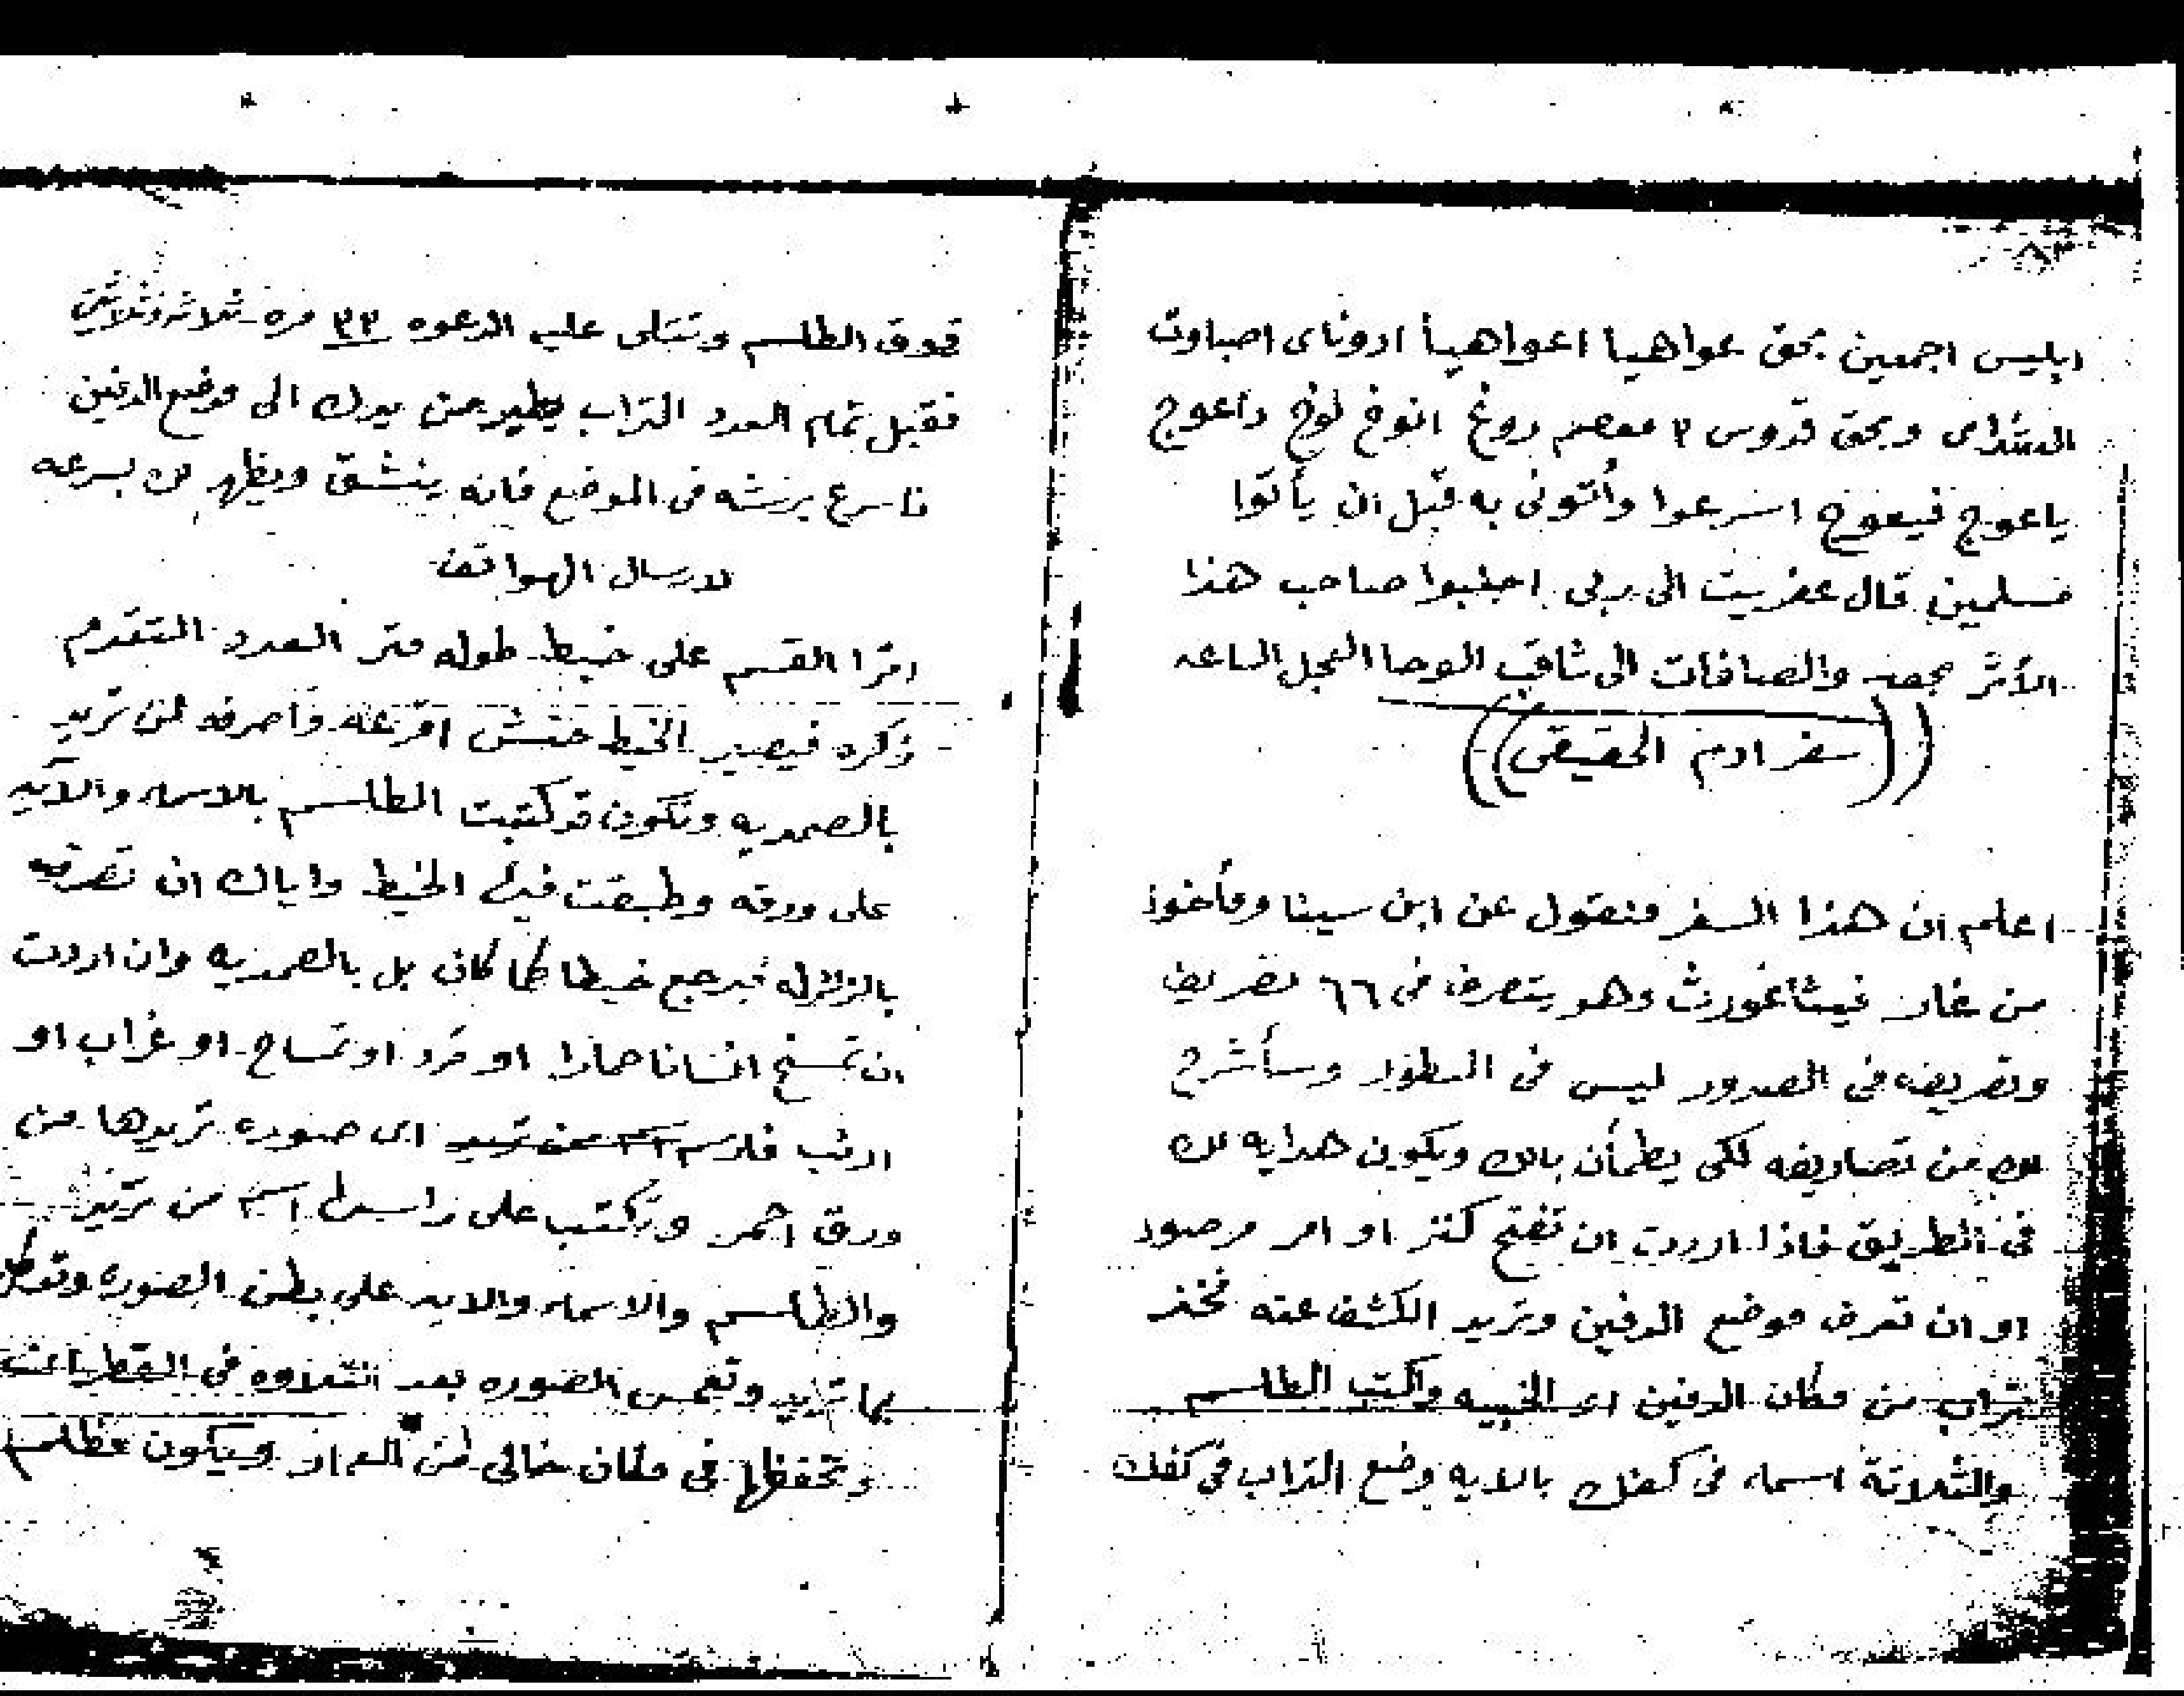 ٨٣
ابليس اجمعين بحق عواهيا اعواهيا ادوناى اصباوت
الشداى وبحق قدوس ٢ معصم روغ انوخ لوخ داعوج
ياعوج فيعوج اسرعوا وأتونى به قبل ان يأتوا
مسلمين قال عفريت الى ربى اجلبوا صاحب هذا
الأثر بحق والصافات الى ثاقب الوحا العجل الساعه
((سفر ادم الحقيقى))
اعلم ان هذا السفر منقول عن ابن سينا ومأخوذ
من غار فيثاغورث وهو يتصرف فى ٦٦ تصريف
وتصريفه فى الصدور ليس فى السطور وسأشرح
لك من تصاريفه لكى يطمأن بالك ويكون هدايه لك
فى الطريق فاذا اردت ان تفتح كنز او امر مرصود
او ان تعرف موضع الدفين وتريد الكشف عنه فخذ
تراب من مكان الدفين اى الخبيه واكتب الطلسم
والثلاثة اسماء فى كفك بالايه وضع التراب فى كفك
فوق الطلسم وتتلى عليه الدعوه ٣٣ مره ثلاثه وثلاثين
فقبل تمام العدد التراب يطير من يدك الى موضع الدفين
فاسرع برشه فى الموضع فانه ينشق ويظهر لك بسرعه
لارسال الهواتف
اقرا القسم على خيط طوله متر العدد المتقدم
ذكره فيصير الخيط حنش افزعه واصرفه لمن تريد
بالصمديه وتكون قد كتبت الطلسم بالاسماء والآيه
على ورقه وطبقت فيها الخيط واياك ان تصرفه
بالزلزله فيرجع خيطا كما كان بل بالصمديه وان اردت
ان تمسخ انسانا حمارا او قرد او تمساح او غراب او
ارنب فلرسم اى صوره تريدها من
ورق احمر وتكتب على راسها اسم من تريد
والطلسم والاسماء والايه على بطن الصوره وتوكل
بما تريد وتغمس الصوره بعد التلاوه فى القطران
وتحفظها فى مكان خالى من ويكون مظلم